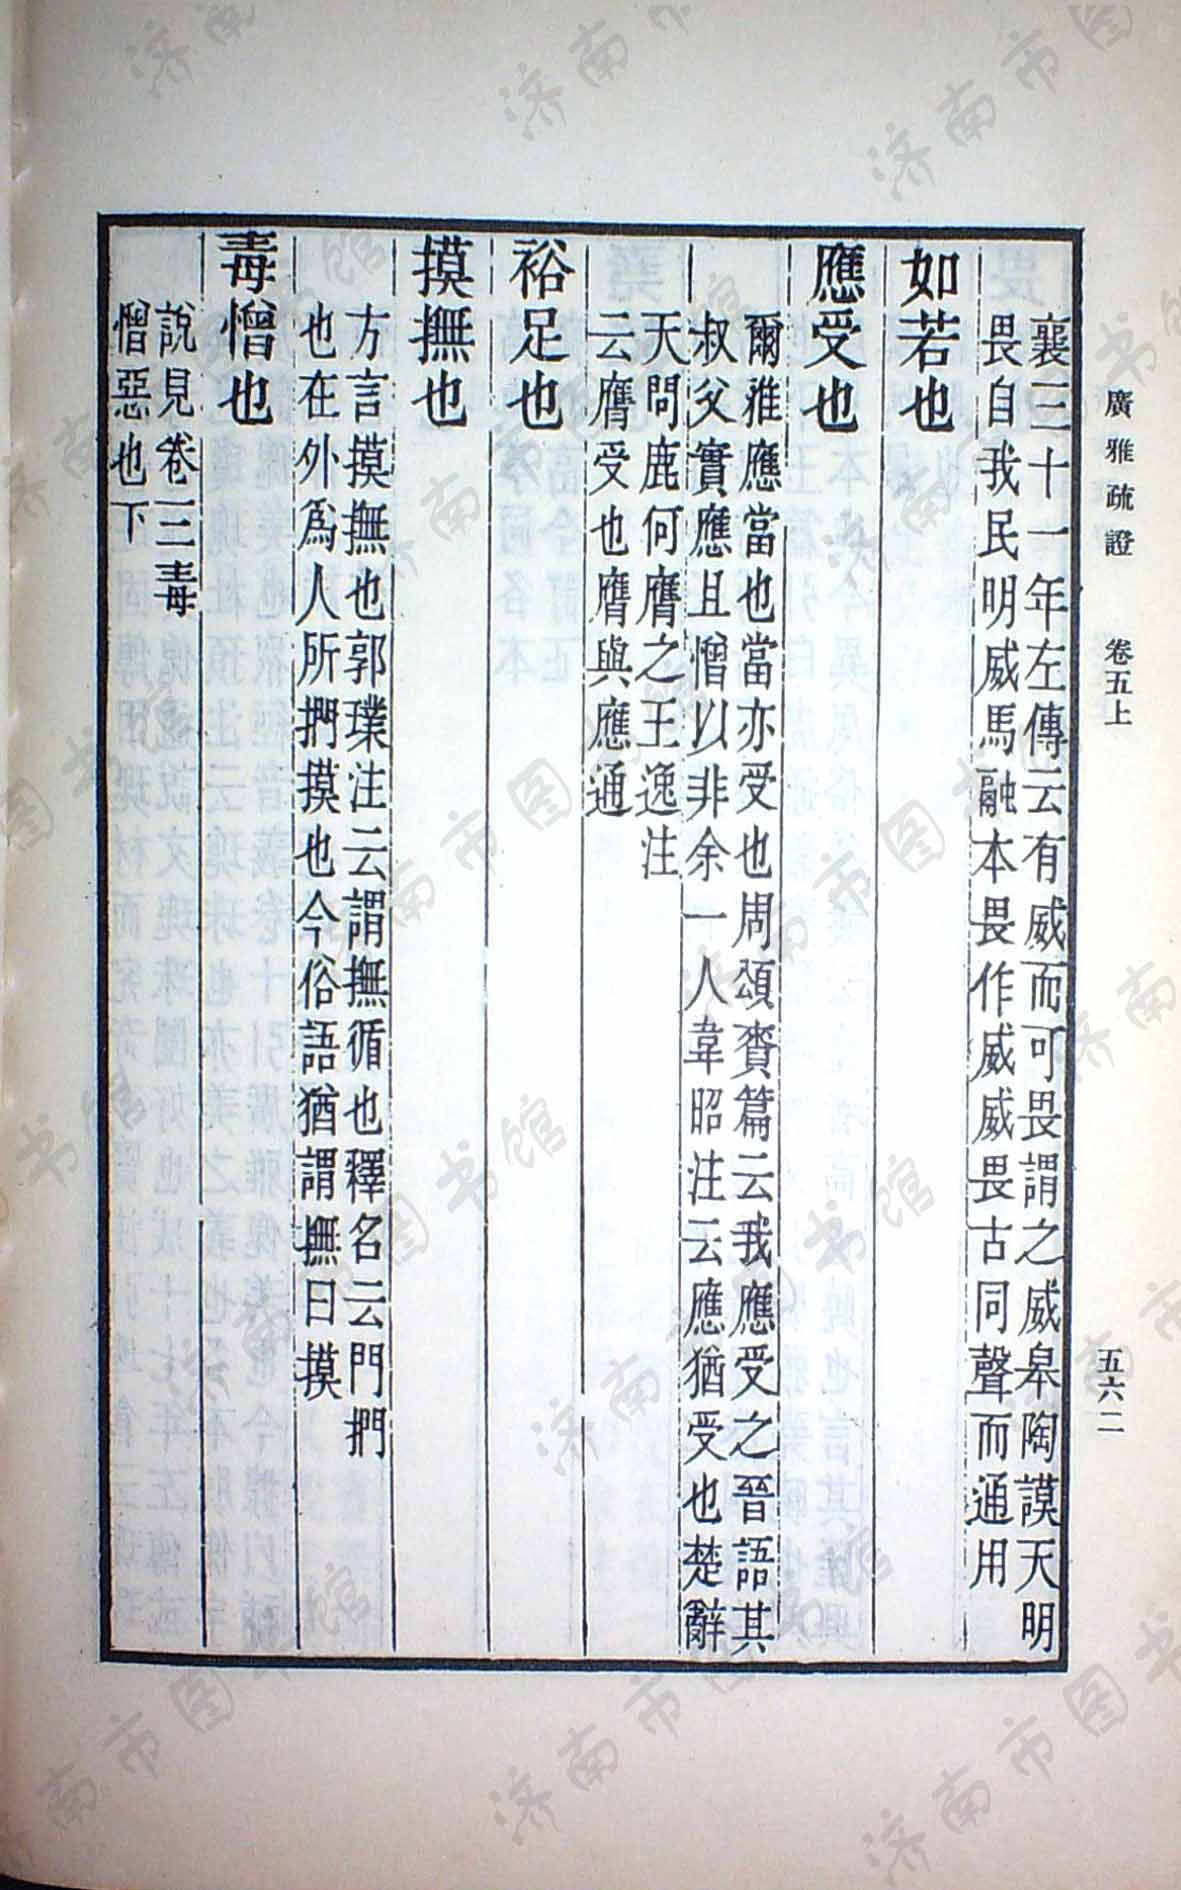 廣雅疏證 卷五上 五六二
襄三十一年左傳云有威而可畏謂之威皋陶謨天明
畏自我民明威馬融本畏作威威畏古同聲而通用
如若也
應受也
爾雅應當也當亦受也周頌賚篇云我應受之晉語其
叔父實應且憎以非余一人韋昭注云應猶受也楚辭
天問鹿何膺之王逸注
云膺受也膺與應通
裕足也
摸撫也
方言摸撫也郭璞注云謂撫循也釋名云門捫
也在外爲人所捫摸也今俗語猶謂撫曰摸
毒憎也
說見卷三毒
憎惡也下
济南市图书馆